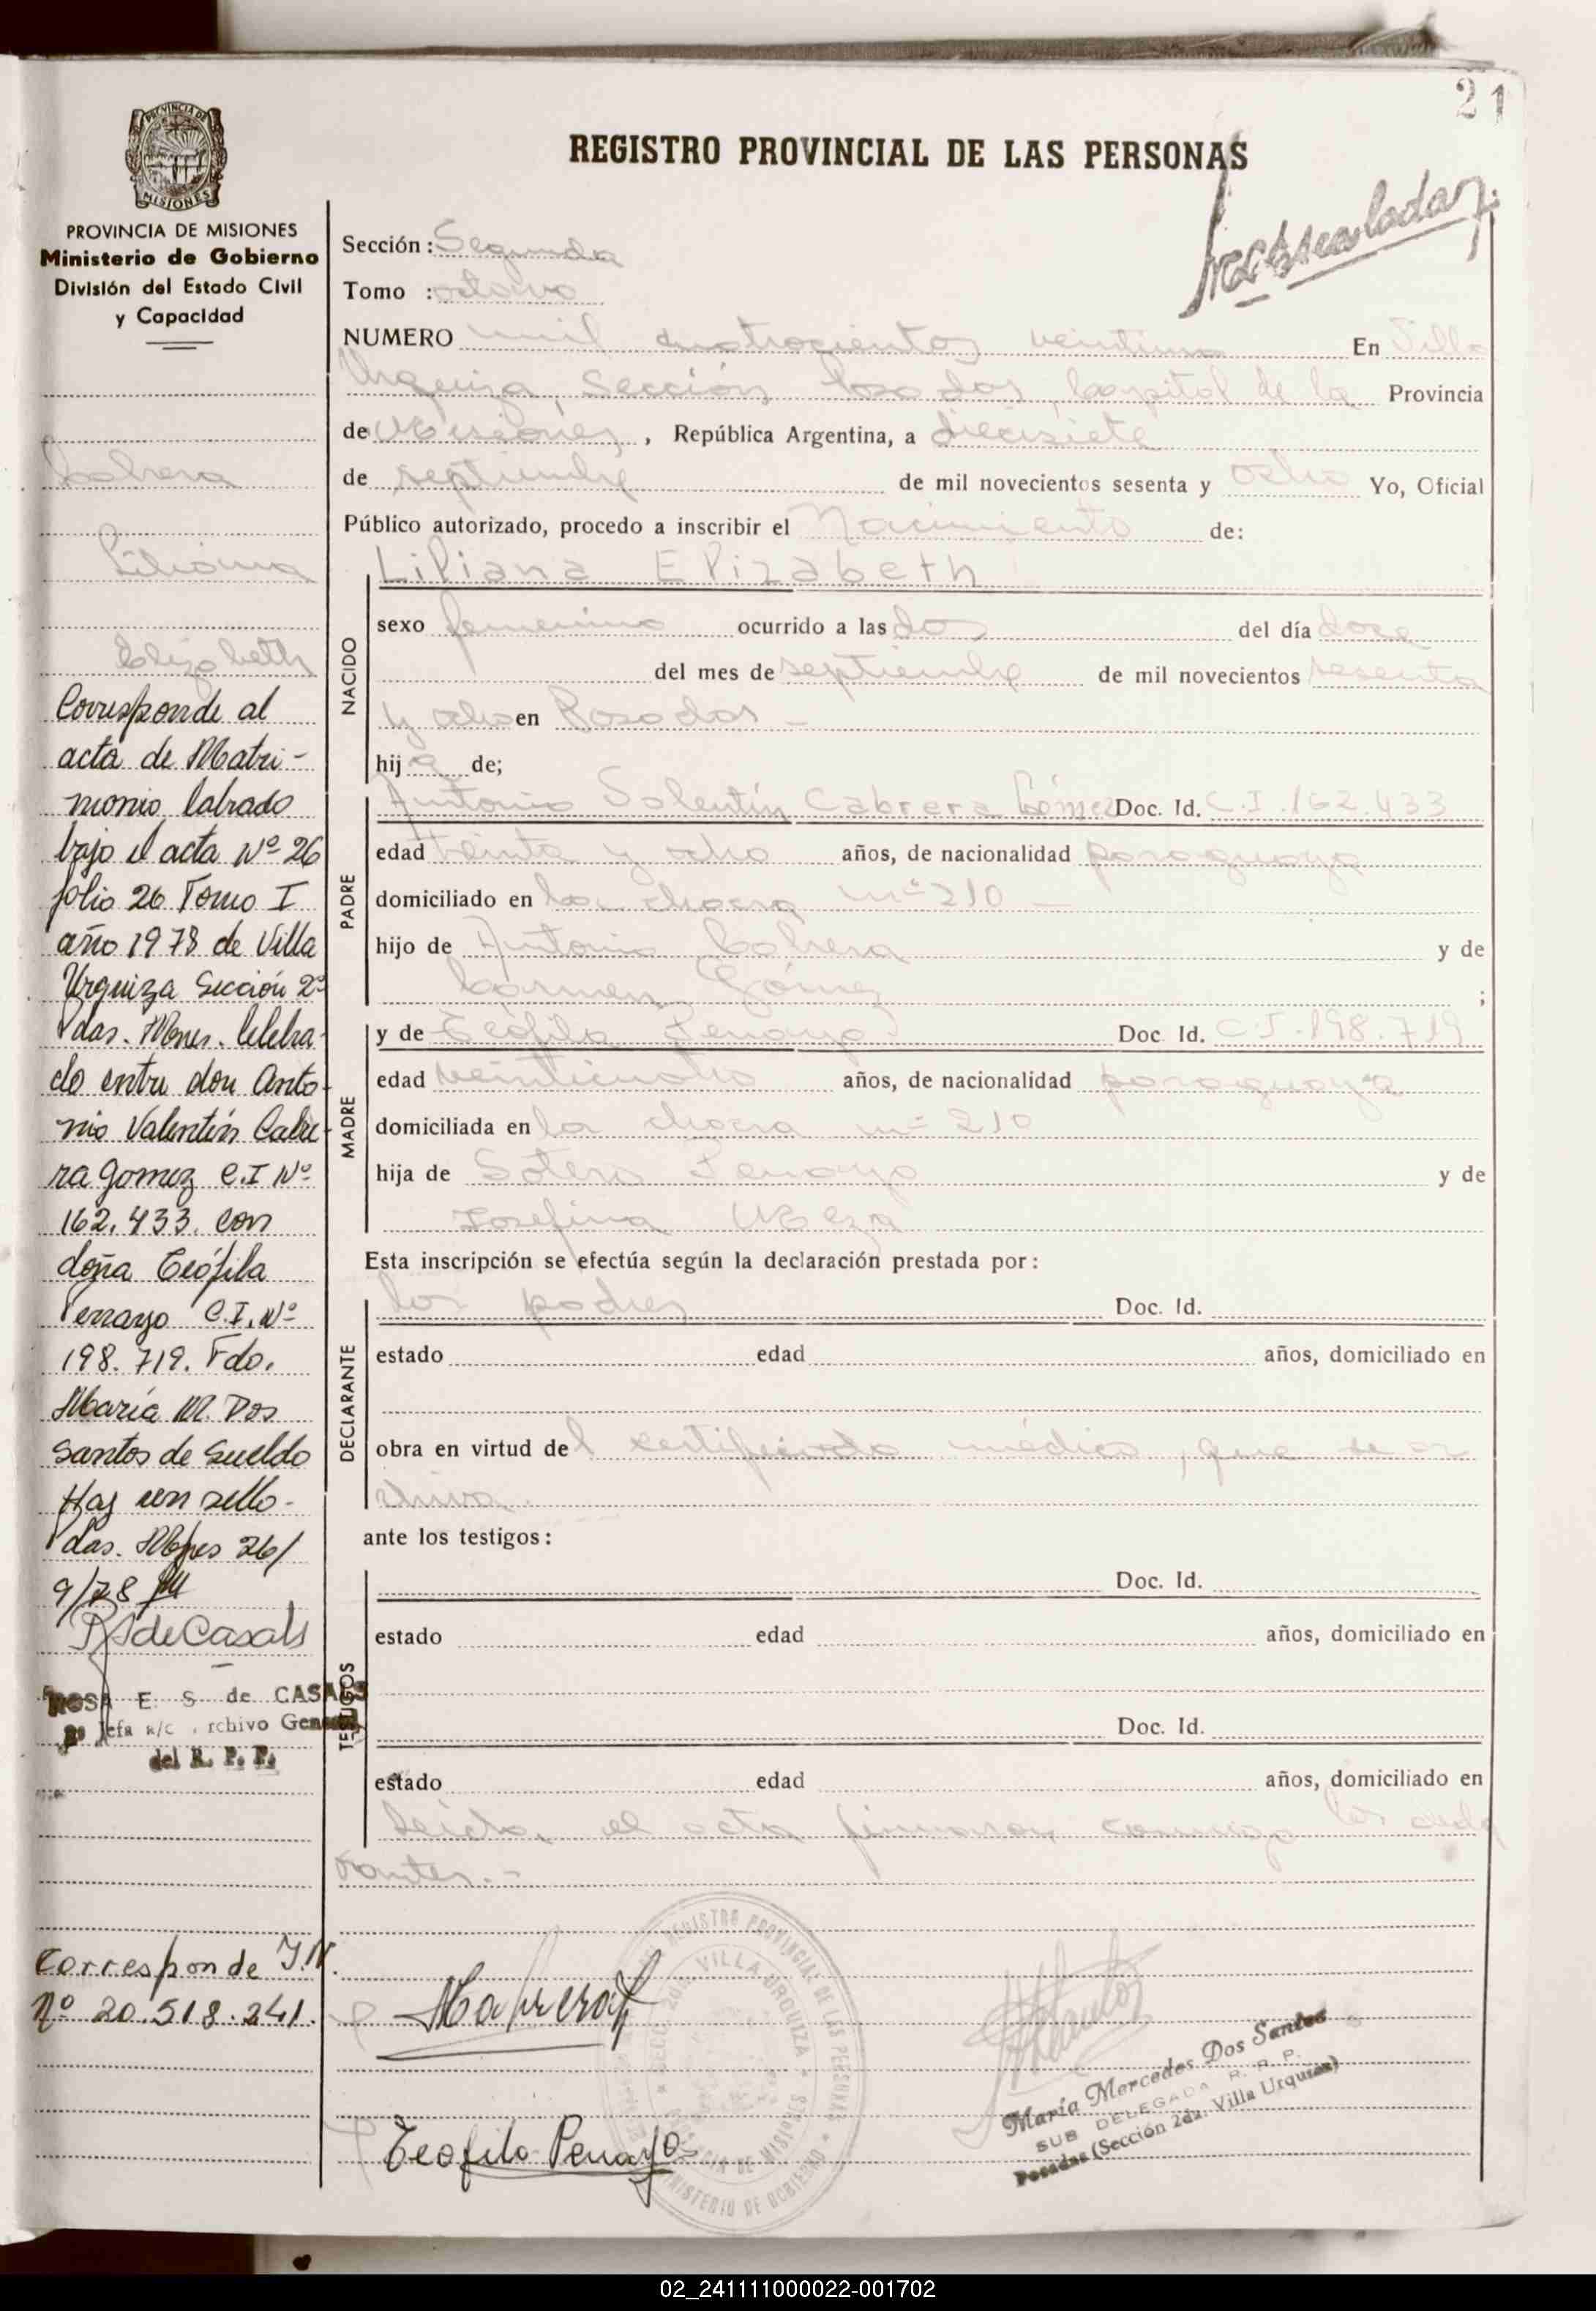 21
REGISTRO PROVINCIAL DE LAS PERSONAS
PROVINCIA DE MISIONES
PROVINCIA DE MISIONES
Ministerio de Gobierno
División del Estado Civil
y Capacidad
Cabrera
Liliana
Elizabeth
Corresponde al
acta de Matri-
monio labrado
bajo el acta Nº 26
folio 26 Tomo I
año 1978 de Villa
Urquiza Sección 2ª
Pdas. Mnes. Celebra-
do entre don Anto-
nio Valentín Cabre-
ra Gomez C.I Nº
162.433. con
doña Teófila
Penayo C.I. Nº
198.719. Fdo.
María M. Dos
Santos de Sueldo
Hay un sello-
Pdas. Mnes 26/
9/78
de Casals
ROSA E. S. de CASALS
Jefa a/c Archivo General
del R. P. P.
Corresponde I.N.
Nº 20.518.241.
Sección: Segunda
Tomo : octavo
NUMERO mil cuatrocientos veintiuno En Villa
Urquiza, Sección Posadas, Capital de la Provincia
de Misiones, República Argentina, a diecisiete
de septiembre de mil novecientos sesenta y ocho Yo, Oficial
Público autorizado, procedo a inscribir el Nacimiento de:
NACIDO
Liliana Elizabeth
sexo femenino ocurrido a las dos del día doce
del mes de septiembre de mil novecientos sesenta
y ocho en Posadas -
hija de;
PADRE
Antonio Valentín Cabrera Gómez Doc. Id. C.I. 162.433
edad treinta y ocho años, de nacionalidad paraguaya
domiciliado en la chacra nº 210 -
hijo de Antonio Cabrera y de
Carmen Gómez ;
MADRE
y de Teófila Penayo Doc. Id. C.I. 198.719
edad años, de nacionalidad paraguaya
domiciliada en la chacra nº 210
hija de Sotero Penayo y de
Josefina Meza
Esta inscripción se efectúa según la declaración prestada por:
DECLARANTE
los padres Doc. Id.
estado edad años, domiciliado en
obra en virtud del certificado médico, que se ar
chiva.
ante los testigos:
TESTIGOS
Doc. Id.
estado edad años, domiciliado en
Doc. Id.
estado edad años, domiciliado en
Leída el acta firmaron conmigo los decla
rantes.-
REGISTRO PROVINCIAL DE LAS PERSONAS
VILLA URQUIZA
PROVINCIA DE MISIONES
MINISTERIO DE GOBIERNO
Teofila Penayo
María Mercedes Dos Santos
SUB DELEGADA R. P. P.
Posadas (Sección 2da. Villa Urquiza)
02_241111000022-001702